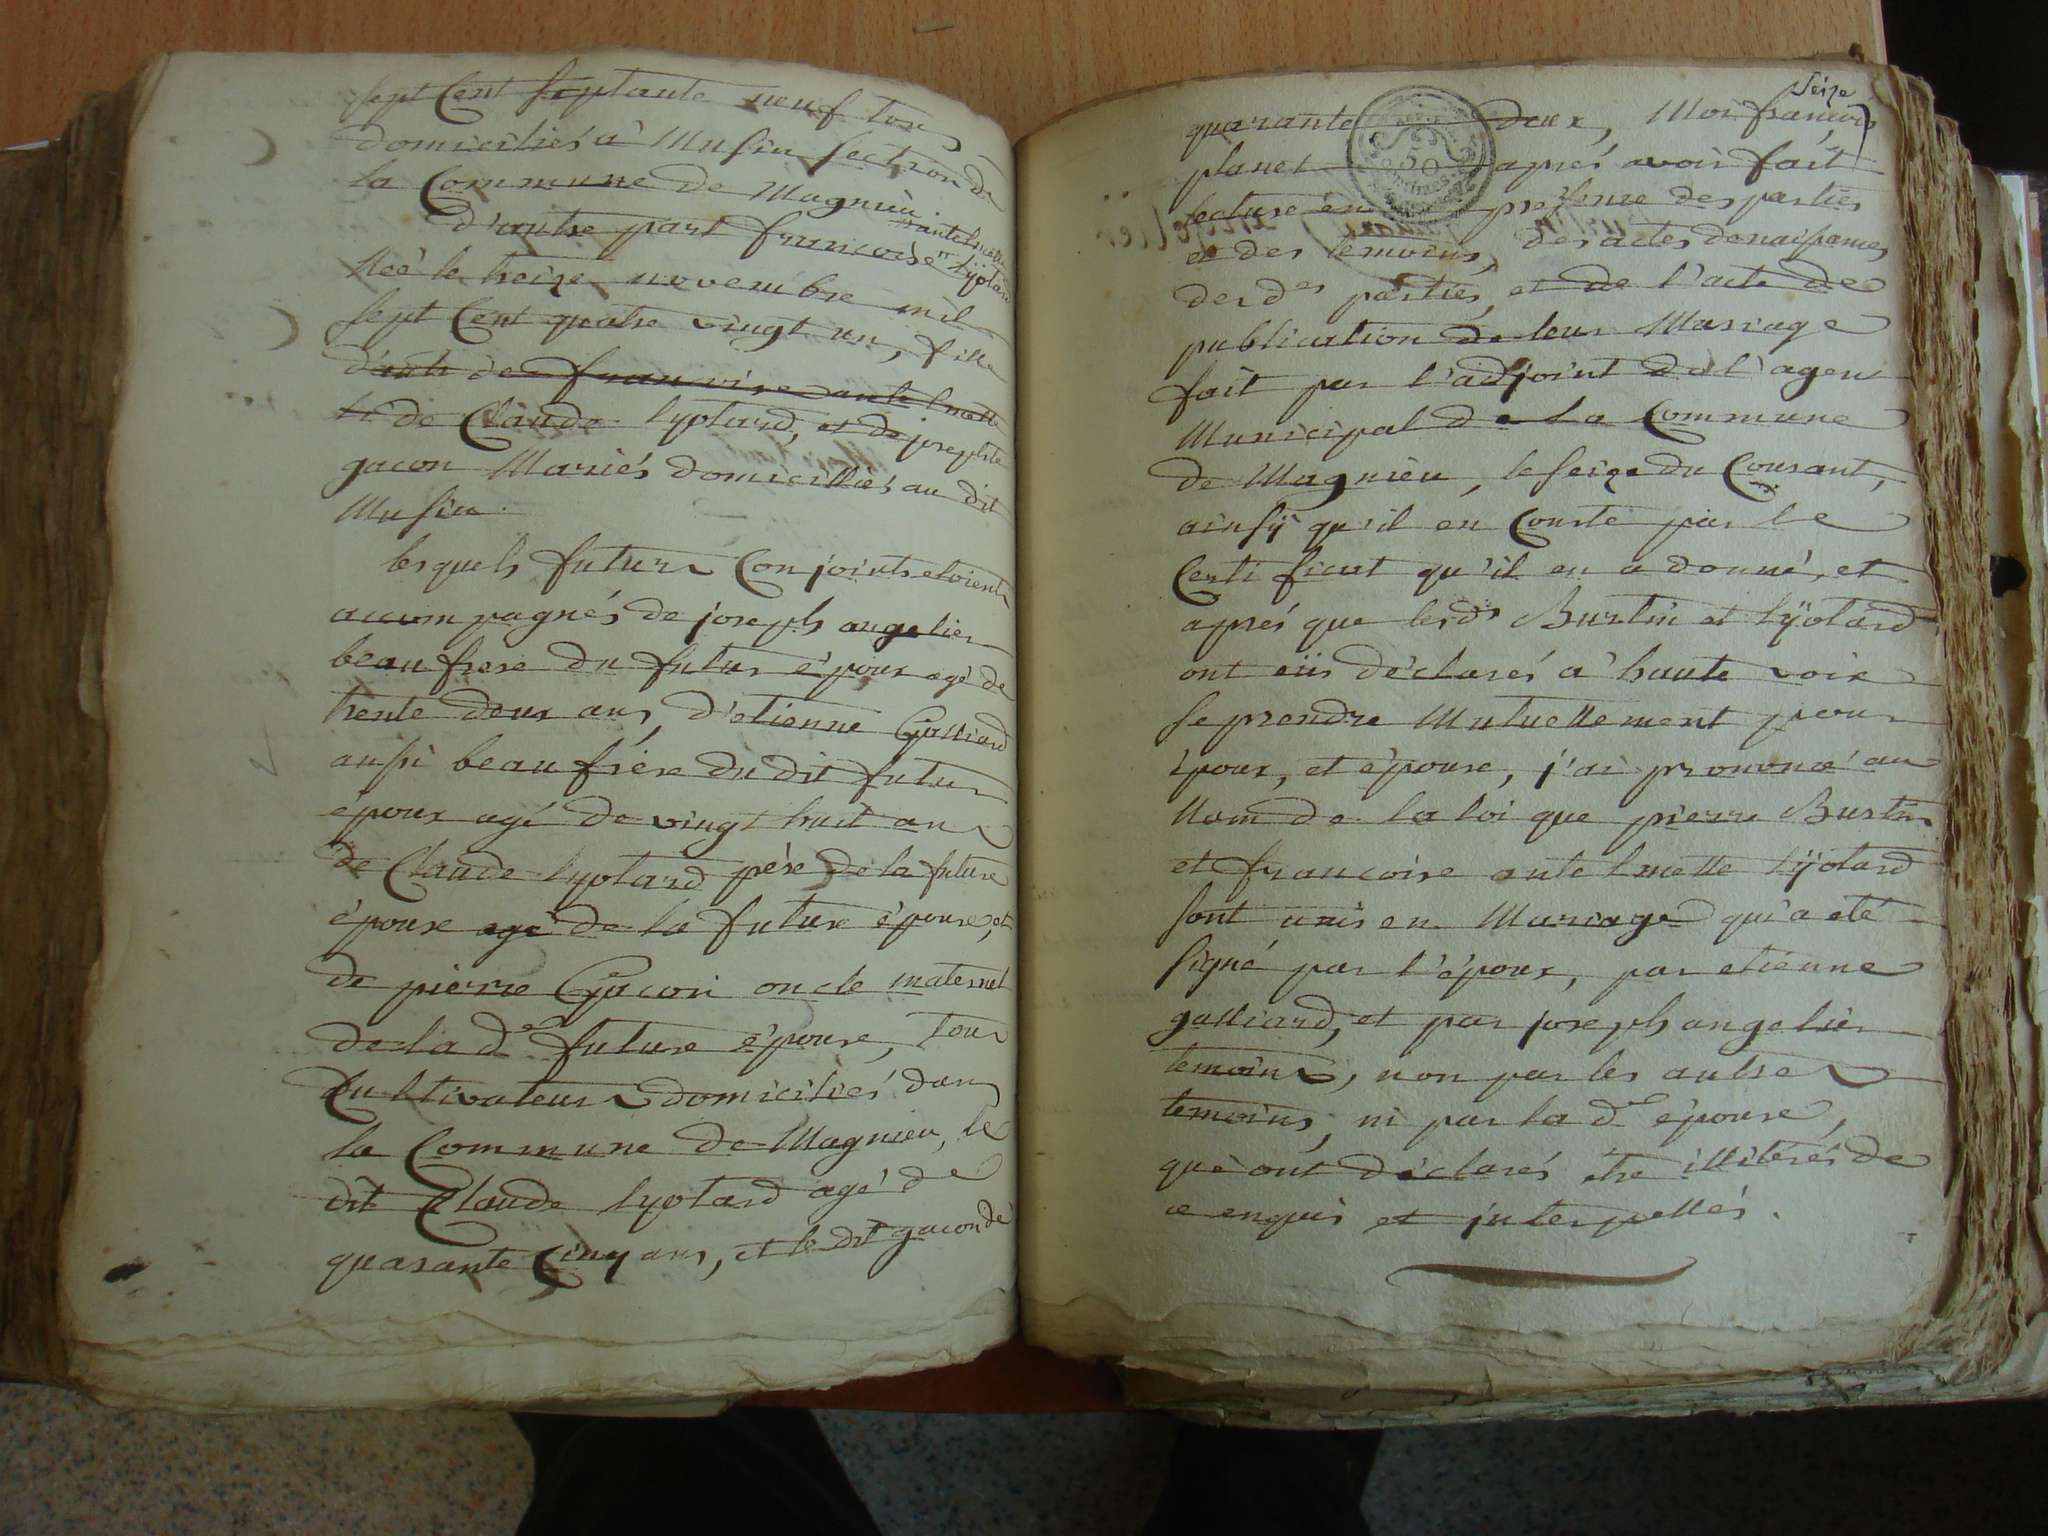 sept Cent septante neuf tous
domiciliés à Musin section de
la Commune de Magnieu
d'autre part francoise antelmette lyotard
Née le treize novembre mil
sept Cent quatre vingt un, fille
de francoise antelmette
de Claude lyotard, et de josephte
gacon Mariés domicilliés au dit
Musin.
lesquels futurs Conjoints etoient
accompagnés de joseph angelier
beau frere du futur épour agé de
trente deux ans, d'etienne Galliard
aussi beau frére du dit futur
épour agé de vingt huit ans
de Claude lyotard pére de la future
épouse agé de la future épouse, et
de pierre Gacon oncle maternel
de la de future épouse, tous
Cultivateurs domiciliés dans
la Commune de Magnieu, le
dit Claude lyotard agé de
quarante Cinq ans, et le dit gacon de
seize
quarante deux, Moi francois
planet après avoir fait
lecture en presence des parties
et des temoins, des actes de naissances
des des parties, et de l'acte de
publication de leur Mariage
fait par l'adjoint de l'agent
Municipal de la Commune
de Magnieu, le seize du Courant,
ainsÿ qu'il en Conste par le
Certificat qu'il en a donné, et
aprés que lesds Burtin et lÿotard
ont eüs déclarés a' haute voix
se prendre Mutuellement pour
époux, et épouse, j'ai prononcé au
Nom de la loi que pierre Burtin
et francoise antelmette lÿotard
sont unis en Mariage qui a eté
signé par l'époux, par etienne
galliard, et par joseph angelier
temoins, non par les autres
temoins, ni par la de épouse,
que ont déclarés être illitérés de
ce enquis et interpellés.
50